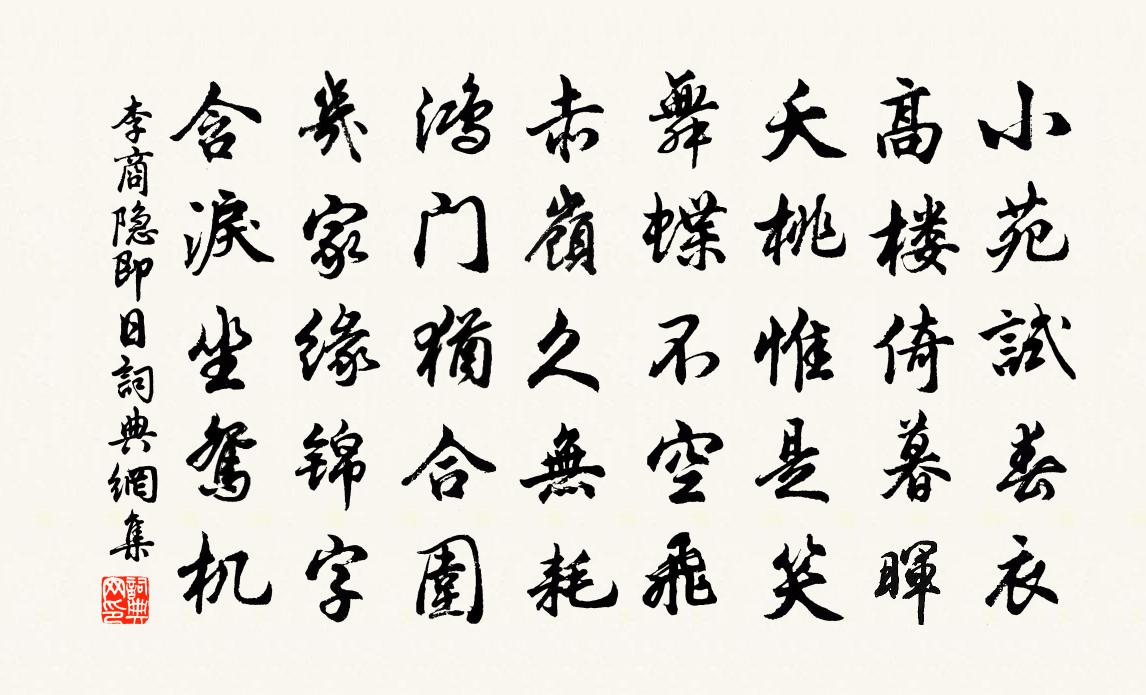 小苑試春衣
髙楼倚暮暉
夭桃惟是笑
舞蝶不空飛
赤嶺久無耗
鴻门猶合圍
幾家缘锦字
含淚坐鴛机
李商隐即日詞典網集
詞典网印